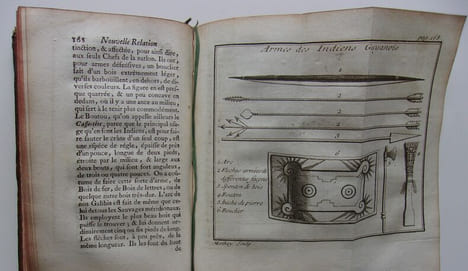 168 Nouvelle Relation
tinction, & affectée, pour ainsi dire,
aux seuls Chefs de la nation. Ils ont,
pour armes défensives, un bouclier
fait d'un bois extrêmement léger,
qu'ils barbouillent, en dehors, de di-
verses couleurs. La figure en est pres-
que quarrée, & un peu concave en
dedans, où il y a une anse au milieu,
qui sert à le tenir plus commodément.
Le Boutou, qu'on appelle ailleurs le
parce que le principal usa-
ge qu'en font les Indiens, est pour fai-
re sauter le crâne d'un seul coup, est
une espéce de régle, épaisse de près
d'un pouce, longue de deux pieds,
étroite par le milieu, & large aux
deux bouts, qui sont fort anguleux,
de trois ou quatre pouces. On a coû-
tume de faire cette forte d'arme, de
Bois de fer, de Bois de lettres, ou de
quelque autre bois très-dur. L'arc de
nos Galibis est fait de même que ce-
lui de tous les Sauvages méridionaux.
Ils employent le plus beau bois qui
puisse se trouver; & lui donnent or-
dinairement cinq ou six pieds de long.
Les fléches sont, à peu près, de la
même longueur. Ils les font du bout
de
Armes des Indiens Guyanois
pag. 168
1
2
2
2
3
6
1. Arc
2. Fléches armées de
differentes façons
4. Boutou
5. hache de pierre
6. Bouclier
Sculp.